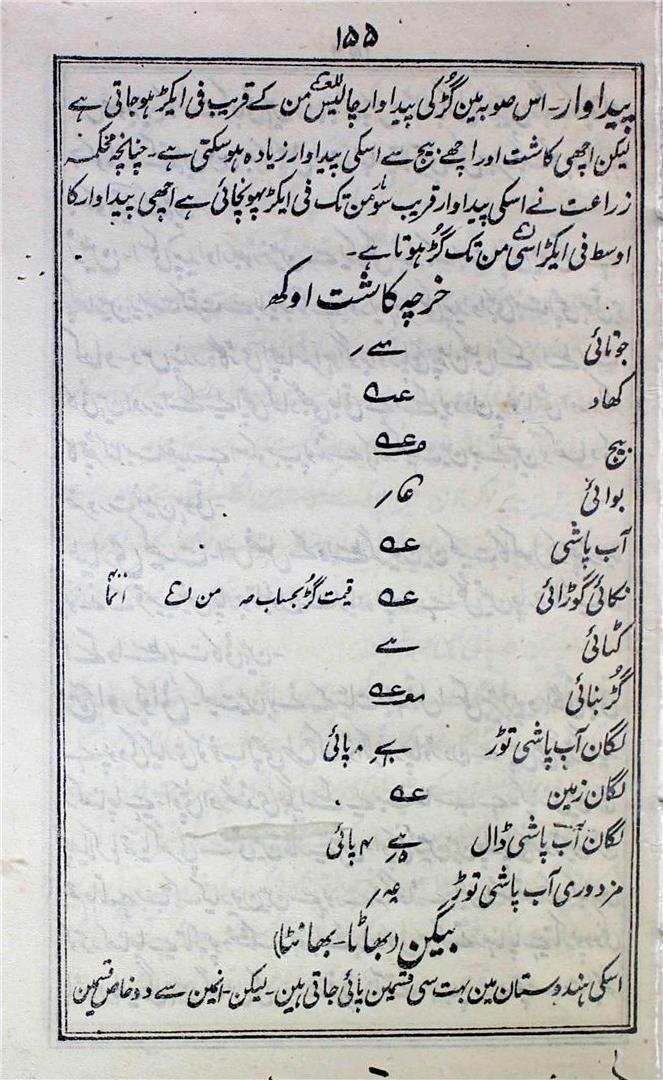 ۱۵۵
پیداوار۔ اس صوبہ مین گڑ کی پیداوار چالیس من کے قریب فی ایکڑ ہو جاتی ہے
لیکن اچھی کاشت اور اچھے بیج سے اسکی پیداوار زیادہ ہو سکتی ہے۔ چنانچہ محکمہ
زراعت نے اسکی پیداوار قریب سو من تک فی ایکڑ پہونچائی ہے اچھی پیداوار کا
اوسط فی ایکڑ اسی من تک گڑ ہوتا ہے۔
خرچہ کاشت اوکھ
جوتائی
کھاد
بیج
بوائی
آب پاشی
نکائی گوڑائی قیمت گڑ بحساب من
کٹائی
گڑ بنائی
لگان آب پاشی توڑ ۸ پائی
لگان زمین
لگان آب پاشی ڈال ۴ پائی
مزدوری آب پاشی توڑ
بیگن (بھاٹا۔ بھانٹا)
اسکی ہندوستان مین بہت سی قسمین پائی جاتی ہین۔ لیکن۔ انمین سے دو خاص قسمین